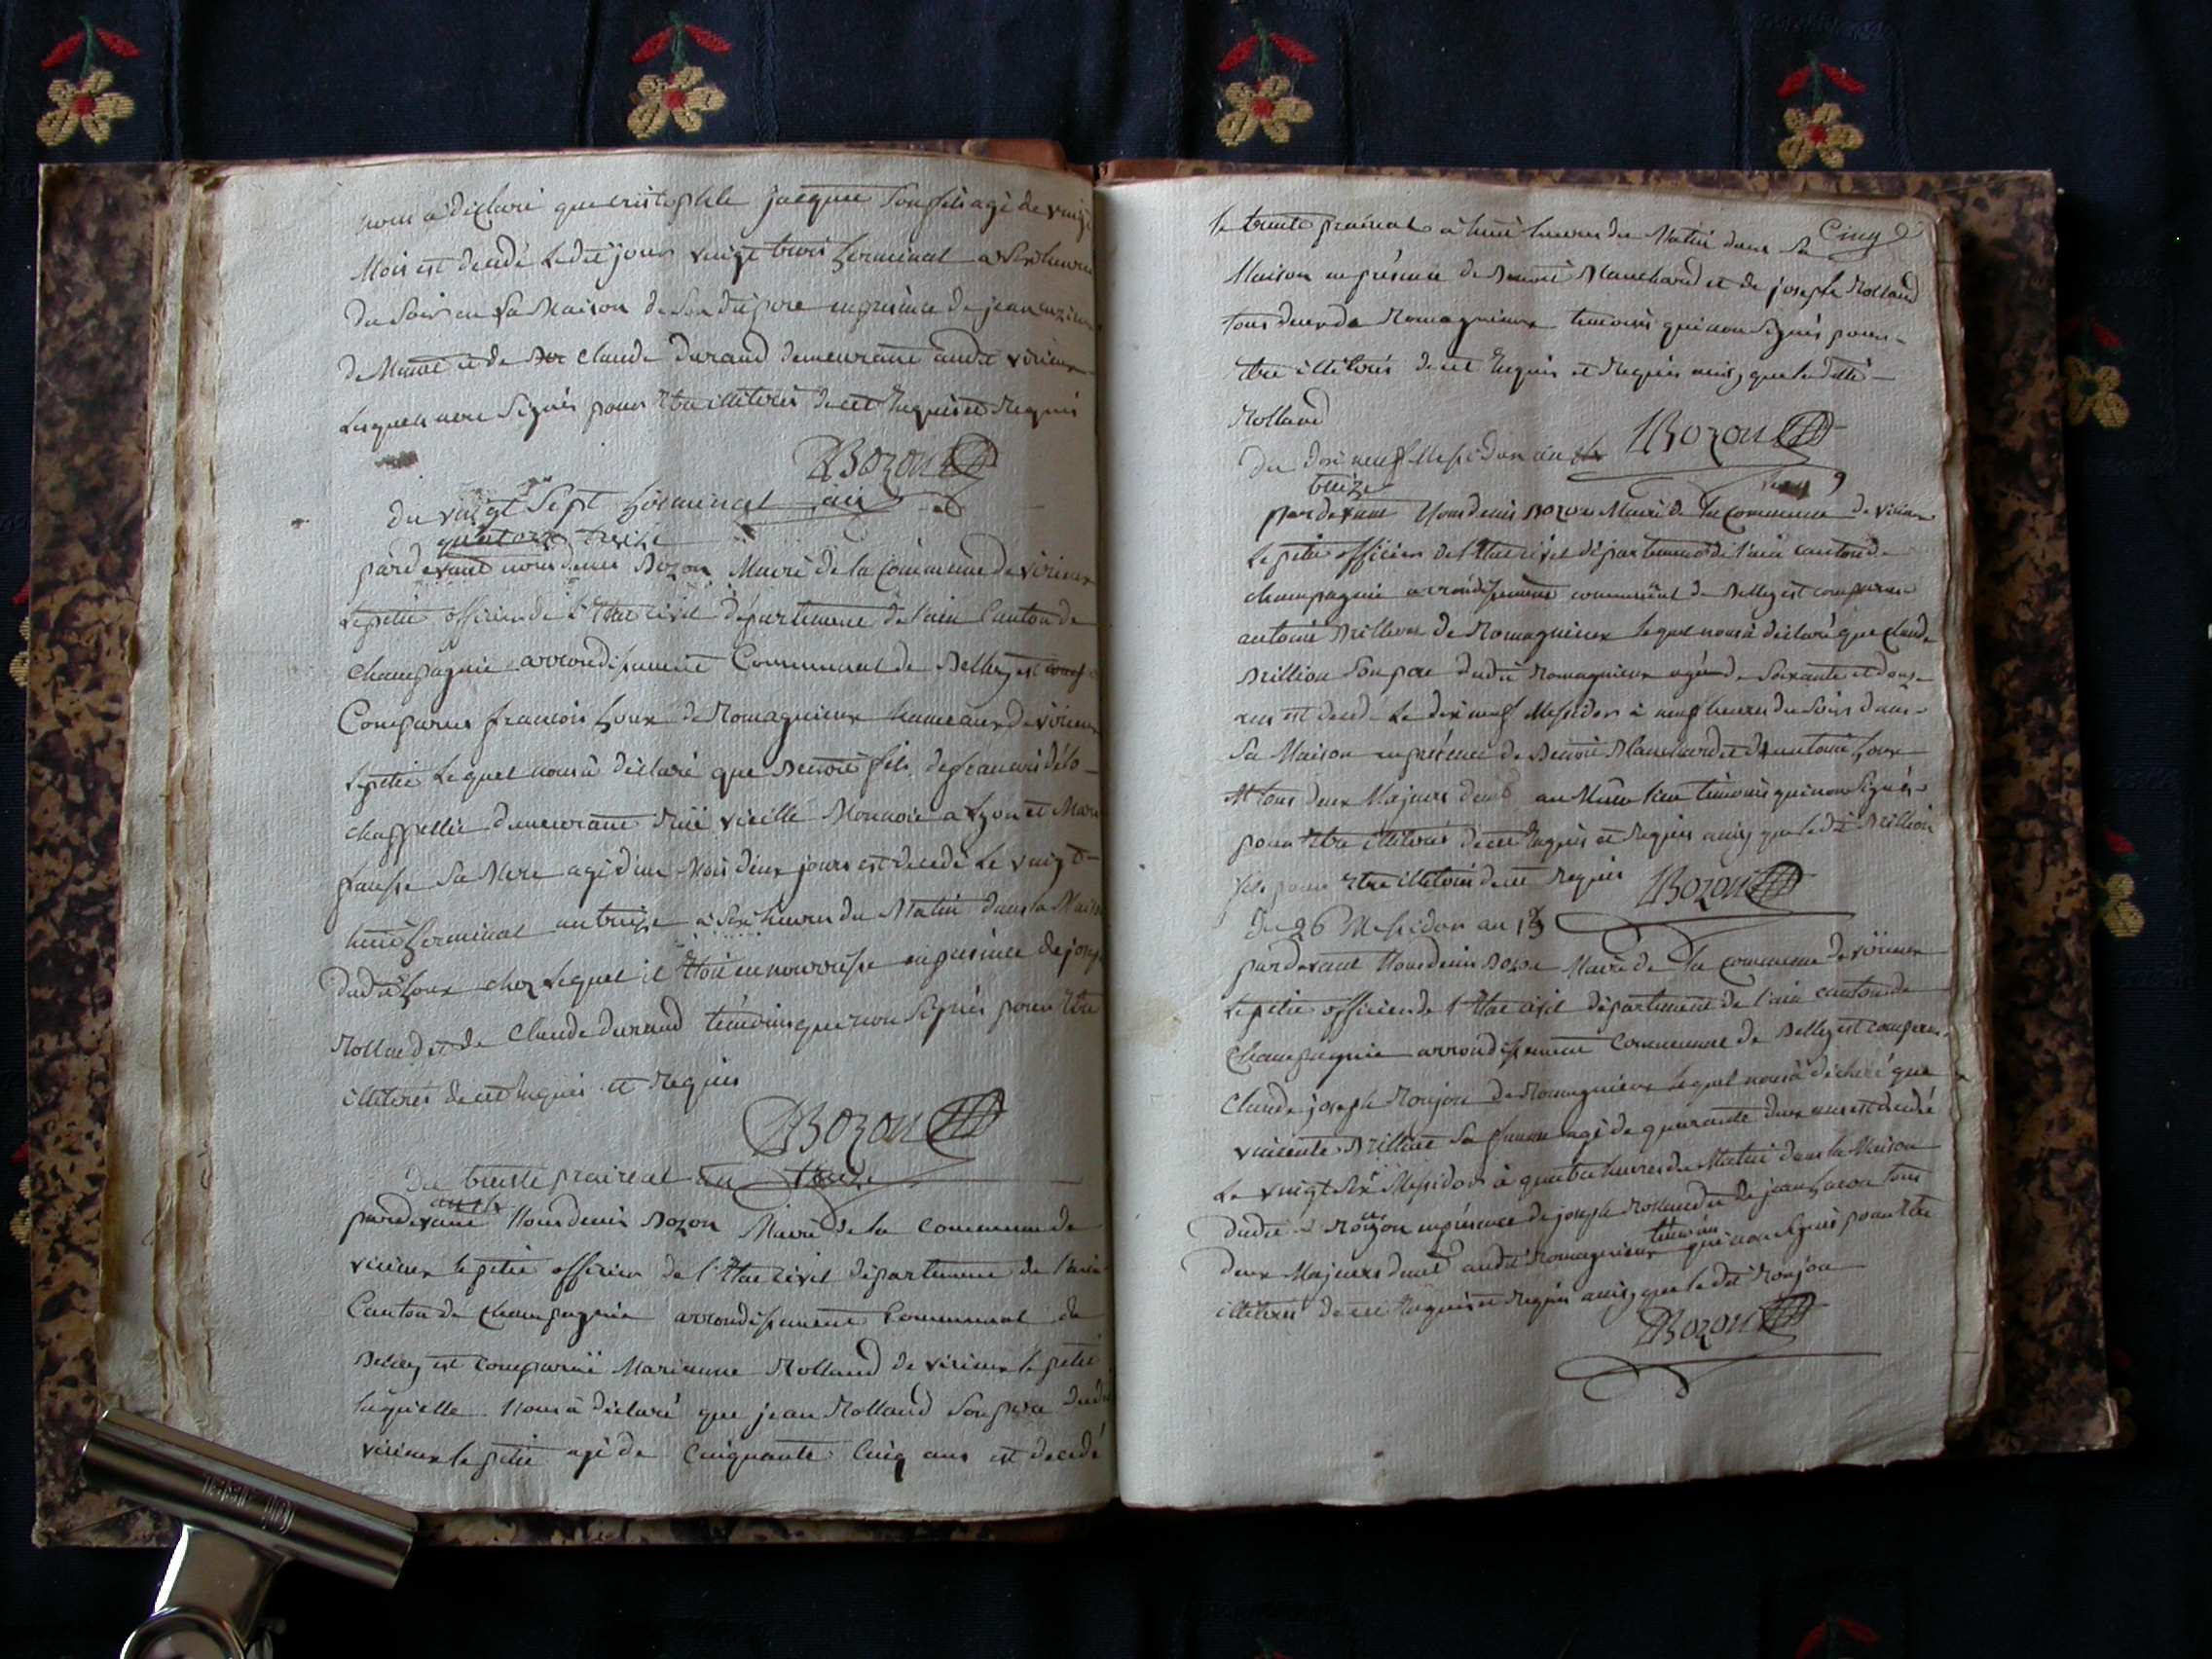 nous a déclaré que cristophle jacques son fils agé de vingt
Mois est decedé Le dit jour vingt trois Germinal a six heures
du Soir en la Maison de Son dit pere en présence de jean
de et de Claude durand demeurant audit virieux
Lesquels nont Signés pour Etre illiterés de ce Enquis et Requis
DBozon
du vingt Sept Germinal an
quatorze treize
pardevant nous denis Bozon Maire de la Commune de virieux
Le petit officier de l'Etat civil département de l'ain Canton de
Champagnie arrondissement Communal de Belley est comp
Comparus francois Goux de Romagnieux hameaux de virieux
Le petit Lequel nous à déclaré que Benoit fils de francois délo
chappellie demeurant Rüe vieille Monnoie a Lyon et Marie
sa Mere agé d'un Mois deux jours est decedé Le vingt
huit Germinal an treize à Six heures du Matin dans la Maison
dudit Goux chez Lequel il Etoit en nourrisse en présence de joseph
Rolland et de Claude durand témoins qui non Signés pour Etre
illiterés de ce Enquis et Requis
DBozon
du trente prairial an treize
pardevant Nous denis Bozon Maire de la Commune de
virieux le petit officier de l'Etat civil département de l'ain
Canton de Champagnie arrondissement Communal de
Belley est Comparüe Marianne Rolland de virieux le petit
laquelle Nous à déclaré que jean Rolland Son pere dudit
virieux le petit agé de Cinquante Cinq ans est decedé
Cinq
le trente prairial à huit heures du Matin dans sa
Maison en présence de Benoit Blanchard et de joseph Rolland
tous deux de Romagnieux temoins qui non Signés pour
Etre illiterés de ce Enquis et Requis ainsy que la ditte
Rolland
DBozon
du dix neuf Messidor an
treize
pardevant Nous denis Bozon Maire de la Commune de virieux
Le petit officier de l'Etat civil département de l'ain canton de
champagnie arrondissement communal de Belley est comparus
antoine Brillion de Romagnieux lequel nous à déclaré que Claude
Brillion Son pere dudit Romagnieux agé de Soixante et douze
ans est decedé Le dix neuf Messidor à neuf heures du Soir dans
Sa Maison en présence de Benoit Blanchard et d'antoine Goux
tous deux Majeurs demt au Même lieu temoins qui non Signés
pour Etre illiterés de ce Enquis et Requis ainsy que le dit Brillion
fils pour Etre illiterés de ce Requis
DBozon
du 26 Messidor an 13
pardevant Nous denis Bozon Maire de la Commune de virieux
Le petit officier de l'Etat civil département de l'ain canton de
Champagnie arrondissement Communal de Belley est comparus
Claude joseph Monjon de Romagnieux lequel nous à déclaré que
vincente Brillion Sa femme agé de quarante deux ans est decedé
Le vingt Six Messidor à quatre heures du Matin dans la Maison
dudit en présence de joseph Rolland et de jean tous
temoins
deux Majeurs demt audit Romagnieux qui non Signés pour Etre
illiterés de ce Enquis et Requis ainsy que le dit Monjon
DBozon